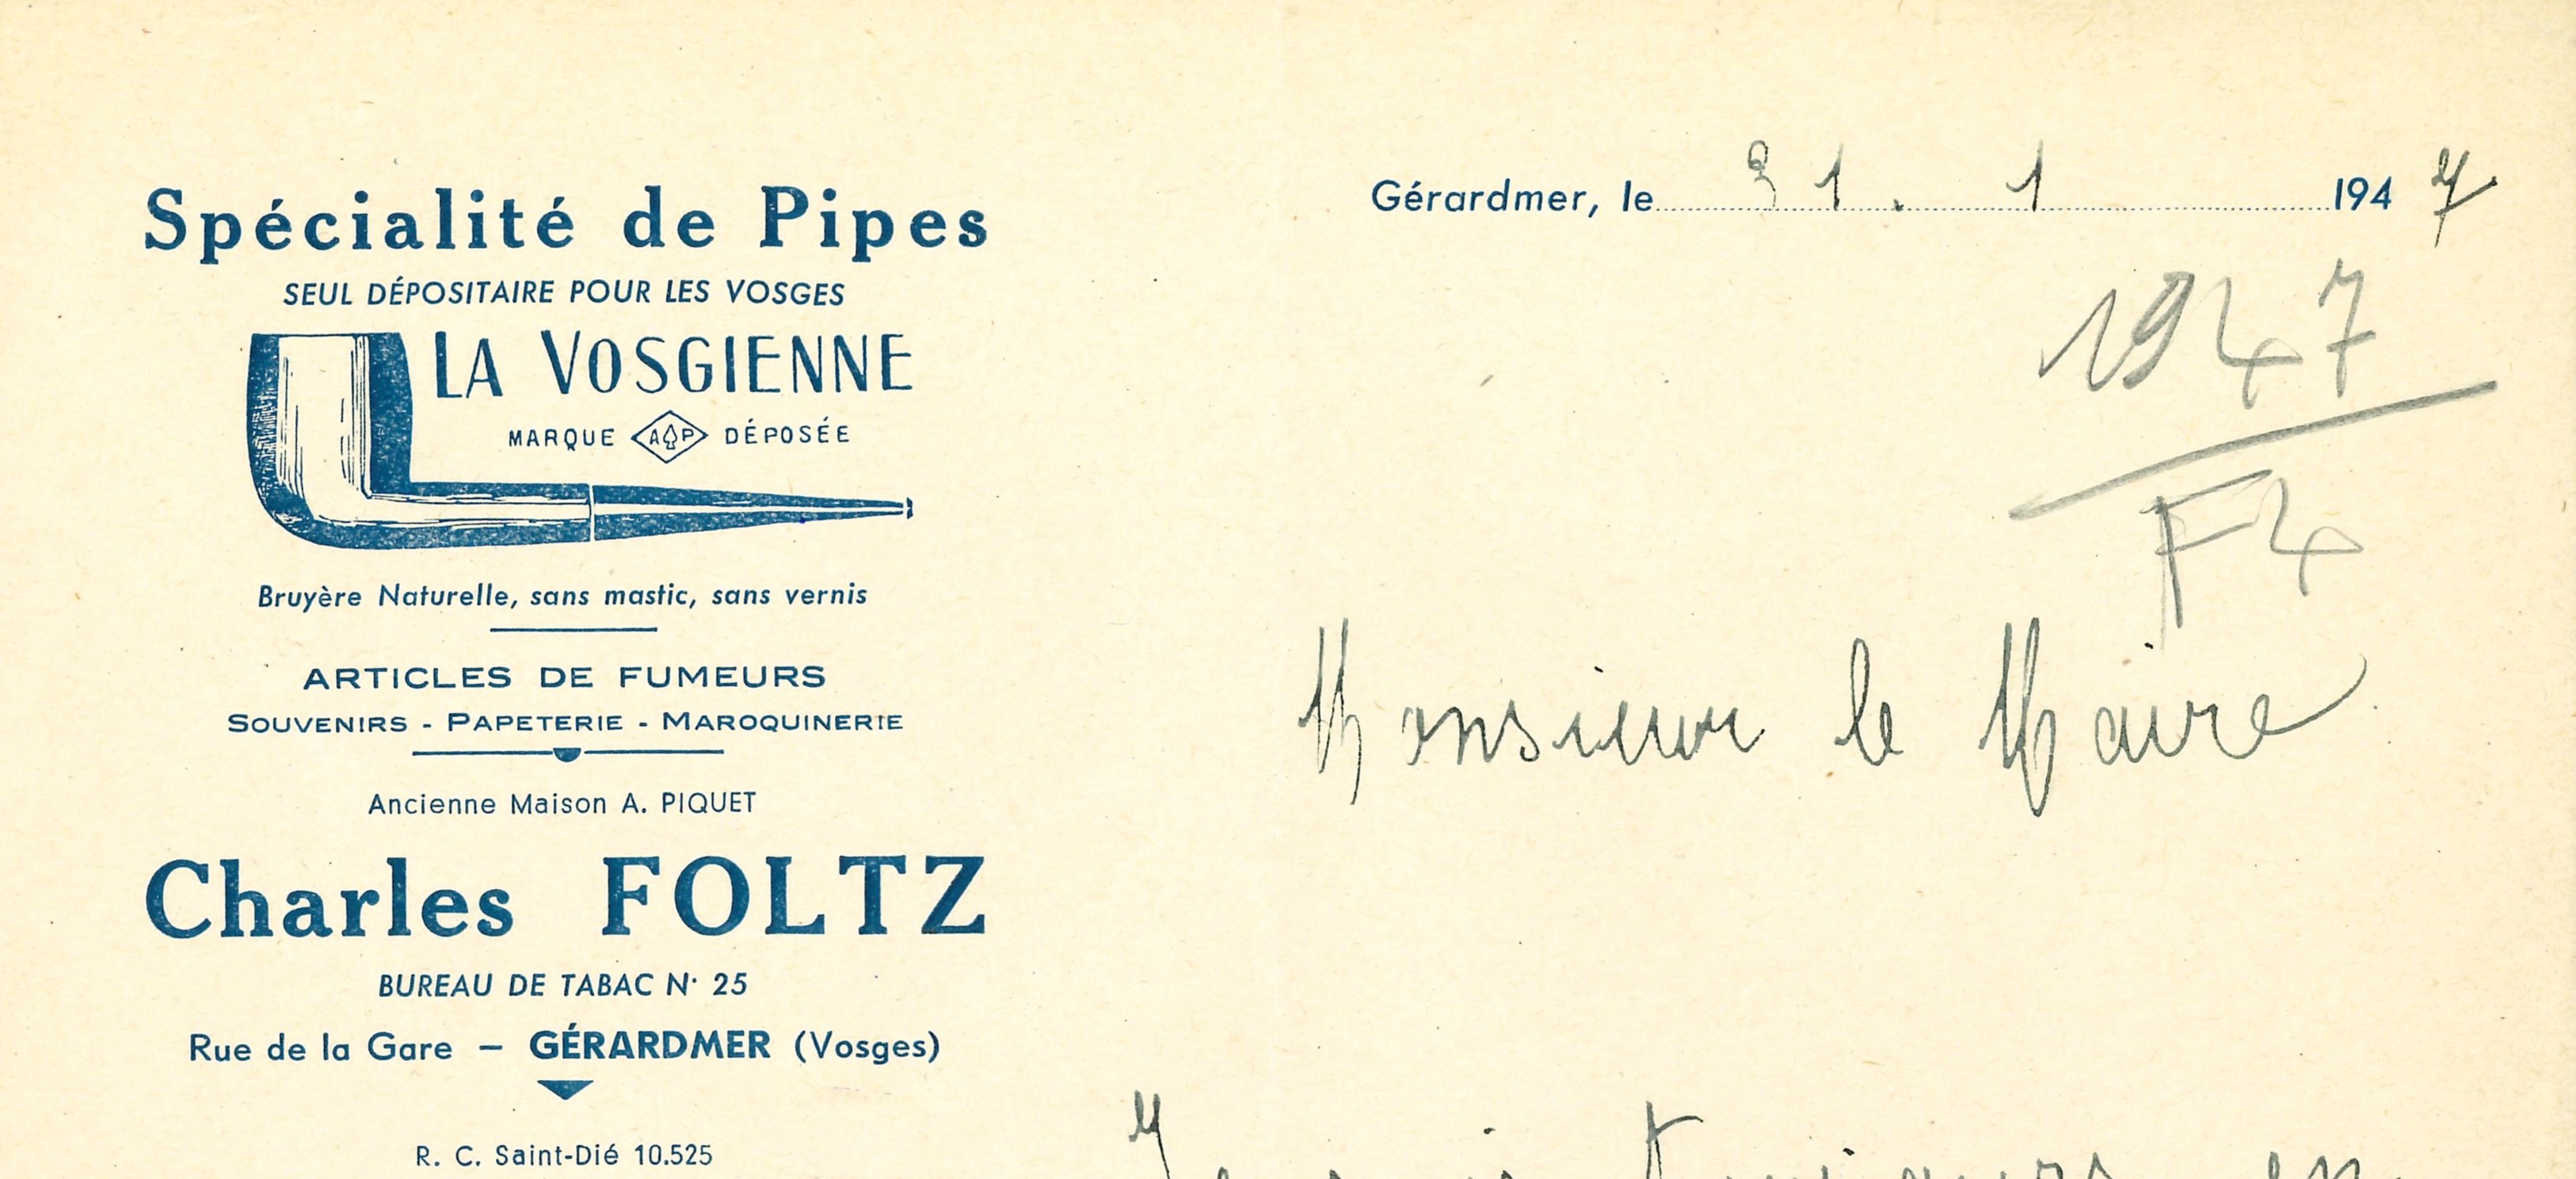 Spécialité de Pipes
SEUL DÉPOSITAIRE POUR LES VOSGES
LA VOSGIENNE
MARQUE A P DÉPOSÉE
Bruyère Naturelle, sans mastic, sans vernis
ARTICLES DE FUMEURS
SOUVENIRS - PAPETERIE - MAROQUINERIE
Ancienne Maison A. PIQUET
Charles FOLTZ
BUREAU DE TABAC N° 25
Rue de la Gare — GÉRARDMER (Vosges)
R. C. Saint-Dié 10.525
Gérardmer, le 31. 1 1947
1947
F4
Monsieur le Maire